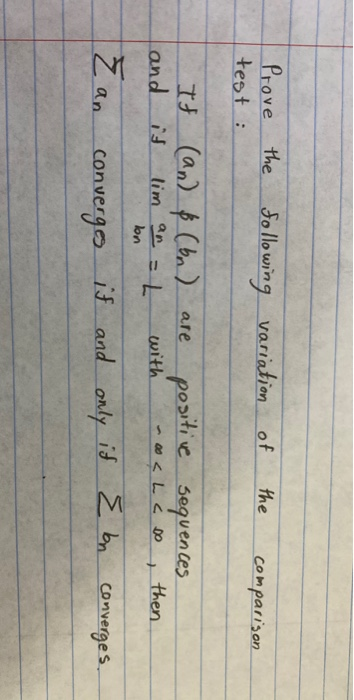 Prove the following variation of the comparison
test :
If (an) & (bn) are positive sequences
and if lim an/bn = L with -∞ < L < ∞, then
Σ an converges if and only if Σ bn converges.